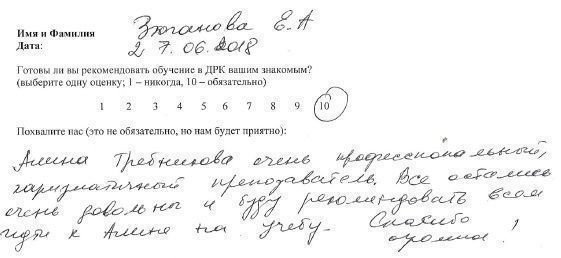 Имя и Фамилия Зюганова Е.А
Дата: 27.06.2018
Готовы ли вы рекомендовать обучение в ДРК вашим знакомым?
(выберите одну оценку; 1 – никогда, 10 – обязательно)
1 2 3 4 5 6 7 8 9 10
Похвалите нас (это не обязательно, но нам будет приятно):
Алина Требникова очень профессиональный,
харизматичный преподаватель. Все остались
очень довольны и буду рекомендовать всем
идти к Алине на учебу. Спасибо
огромное!